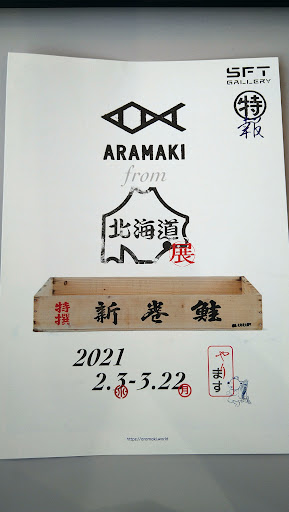 SFT
GALLERY
特
報
ARAMAKI
from
北海道
展
特撰
新巻鮭
2021
2.3-3.22
水
月
やり
ます